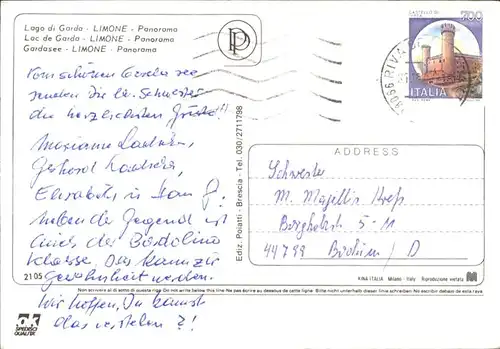 Lago di Garda - LIMONE - Panorama
Lac de Garda - LIMONE - Panorama
Gardasee - LIMONE - Panorama
Vom schönen Gardasee
senden Dir lb. Schwester
die herzlichsten Grüße!!
Marianne
Gerhard
Elisabeth
neben der Jugend ist
auch der Bardolino
Klasse. Das kann zur
Gewohnheit werden.
Wir hoffen, Du kannst
das verstehen?!
2105
Ediz. Poiatti - Brescia - Tel. 030/2711798
700
ITALIA
RIVA
ADDRESS
Schwester
M. Magellis
5 - 11
44799 Bochum / D
KINA ITALIA - Milano - Italy Riproduzione vietata
Non scrivere al di sotto di questa riga Do not write below this line Ne pas écrire au dessous de cette ligne Bitte nicht unterhalb dieser Linie schreiben No escribir debajo de esta raya